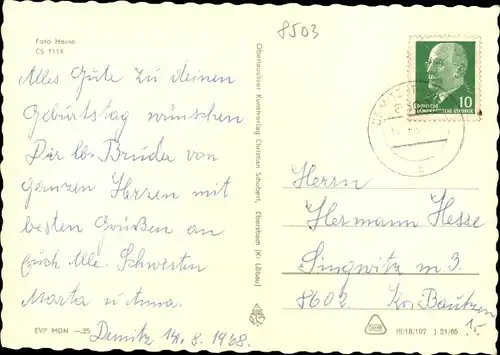 8503
Foto Hesse
CS 1114
Alles Gute zu deinen
Geburtstag wünschen
Dir lb. Bruder von
ganzen Herzen mit
besten Grüßen an
Euch Alle. Schwestern
Marta u. Anna.
Demitz 14. 8. 1968.
EVP MDN —.25
Oberlausitzer Kunstverlag Christian Schubert, Ebersbach (Kr. Löbau)
10
DEUTSCHE
DEMOKRATISCHE REPUBLIK
Herrn
Hermann Hesse
Singwitz n. 3.
8602. Krs. Bautzen
III/18/197 J 21/65
1,-